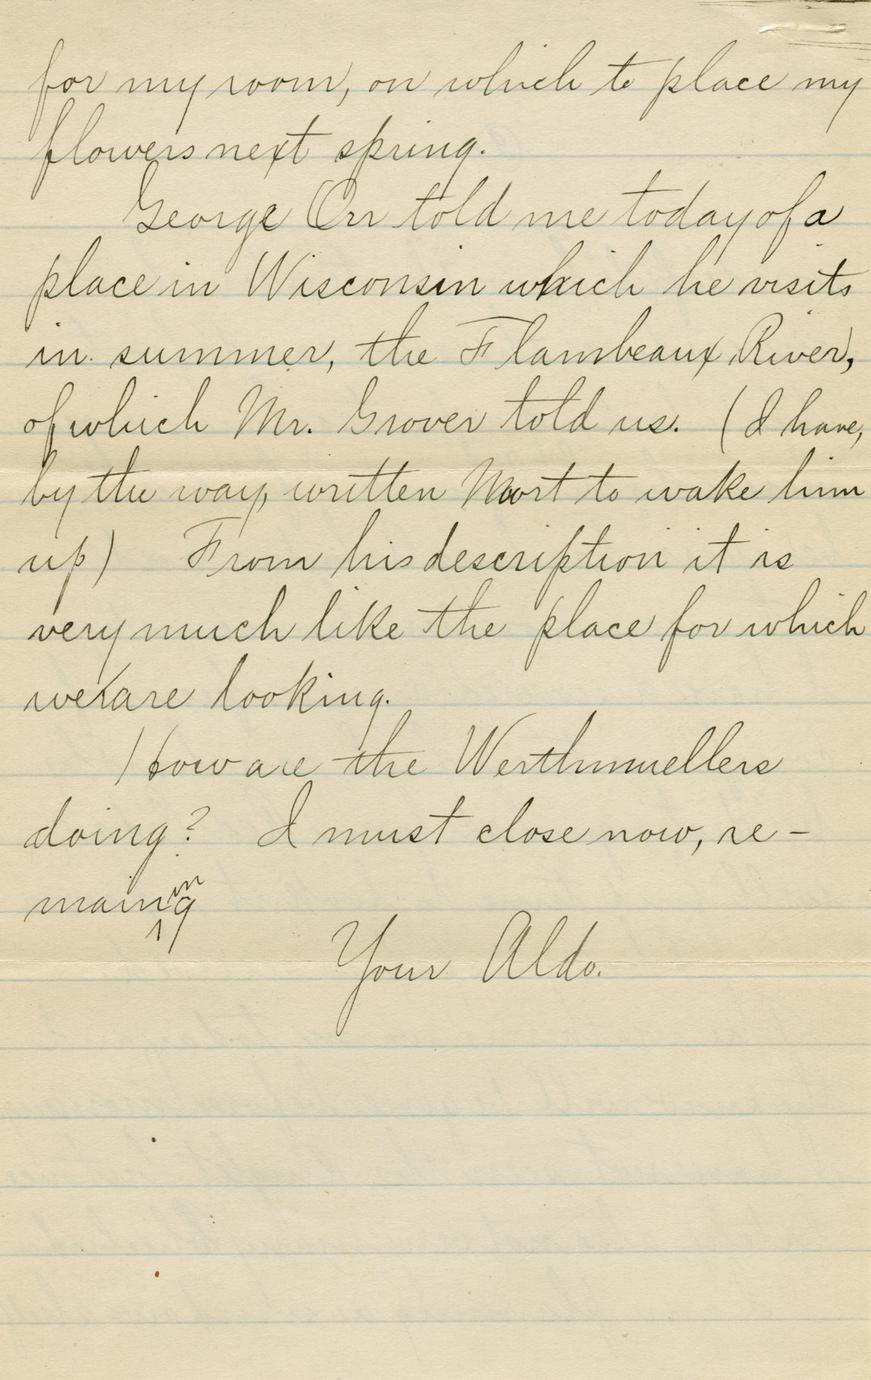 for my room, on which to place my
flowers next spring.
George Orr told me today of a
place in Wisconsin which he visits
in summer, the Flambeaux River,
of which Mr. Grover told us. (I have,
by the way, written Mort to wake him
up) From his description it is
very much like the place for which
we are looking.
How are the Werthmuellers
doing? I must close now, re-
maining
Your Aldo.